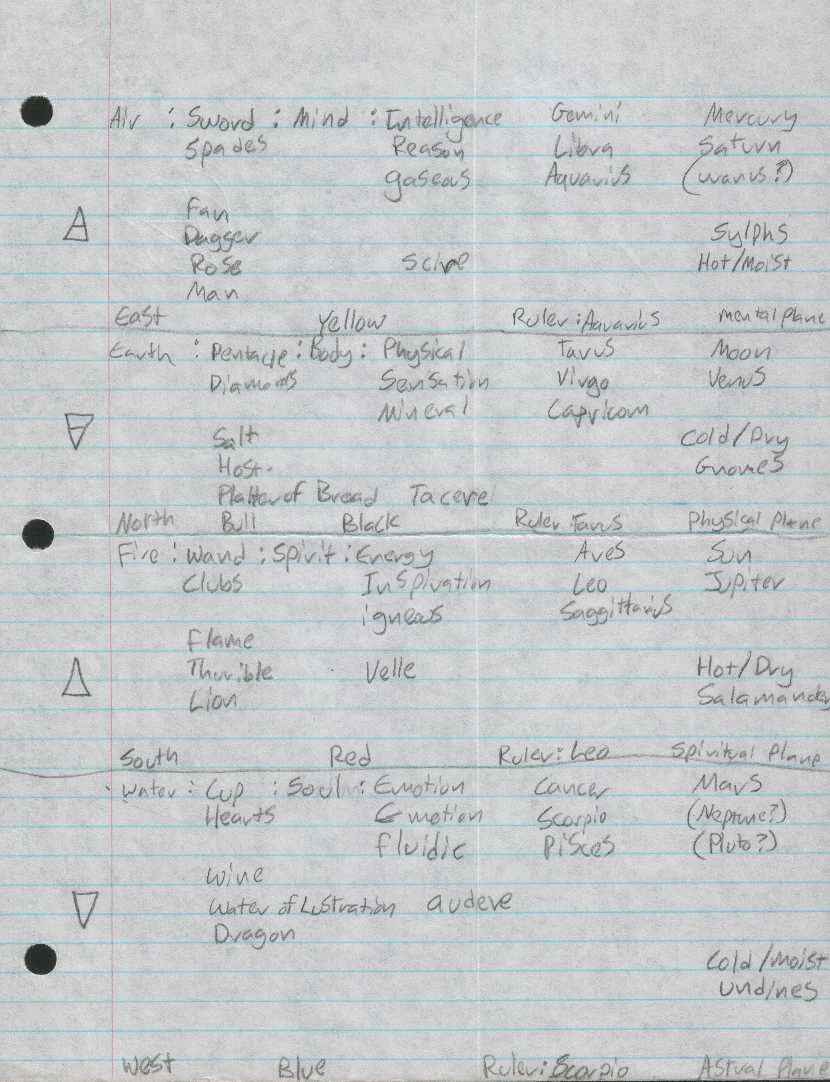 Air : Sword : Mind : Intelligence Gemini Mercury
Spades Reason Libra Saturn
gaseous Aquarius (Uranus?)
Fan
Dagger Sylphs
Rose Scire Hot/Moist
Man
East Yellow Ruler: Aquarius Mental Plane
Earth : Pentacle : Body : Physical Taurus Moon
Diamonds Sensation Virgo Venus
Mineral Capricorn
Salt Cold/Dry
Host Gnomes
Platter of Bread Tacere
North Bull Black Ruler: Taurus Physical Plane
Fire : Wand : Spirit : Energy Aries Sun
Clubs Inspiration Leo Jupiter
igneous Saggittarius
Flame
Thurible Velle Hot/Dry
Lion Salamander
South Red Ruler: Leo Spiritual Plane
Water : Cup : Soul : Emotion Cancer Mars
Hearts Emotion Scorpio (Neptune?)
fluidic Pisces (Pluto?)
Wine
Water of Lustration audere
Dragon
Cold/Moist
Undines
West Blue Ruler: Scorpio Astral Plane